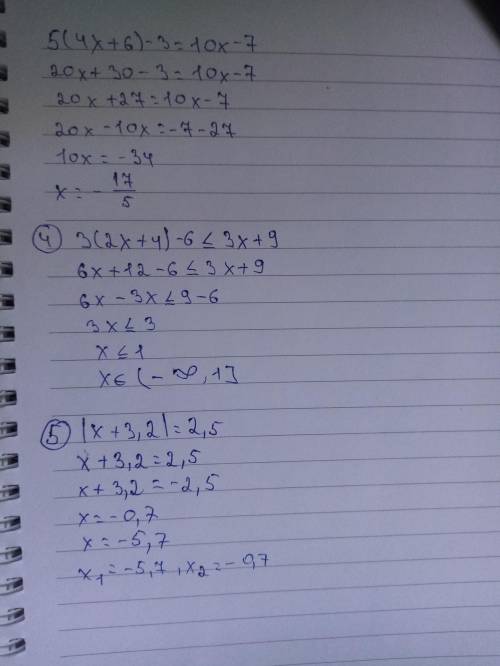 5(4x+6)-3=10x-7
20x+30-3=10x-7
20x+27=10x-7
20x-10x=-7-27
10x=-34
x=-17/5
④ 3(2x+4)-6≤3x+9
6x+12-6≤3x+9
6x-3x≤9-6
3x≤3
x≤1
x∈(-∞,1]
⑤ |x+3,2|=2,5
x+3,2=2,5
x+3,2=-2,5
x=-0,7
x=-5,7
x₁=-5,7, x₂=-0,7